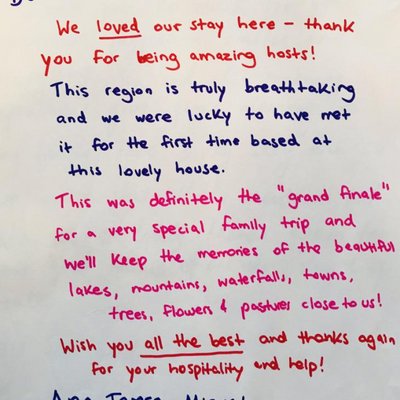 We loved our stay here - thank
you for being amazing hosts!
This region is truly breathtaking
and we were lucky to have met
it for the first time based at
this lovely house.
This was definitely the "grand finale"
for a very special family trip and
we'll keep the memories of the beautiful
lakes, mountains, waterfalls, towns,
trees, flowers & pastures close to us!
Wish you all the best and thanks again
for your hospitality and help!